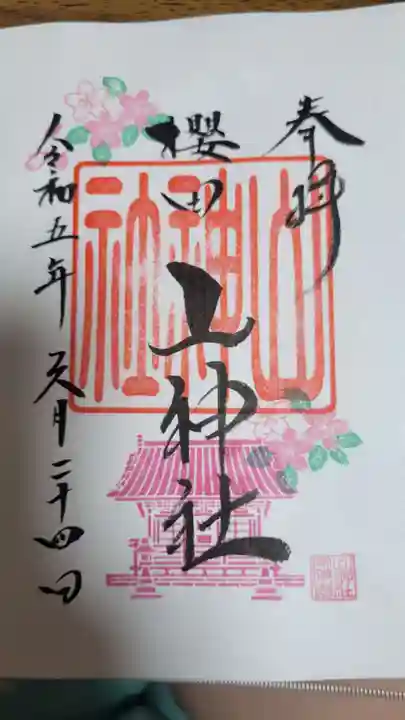 奉拝
櫻田
山神社
山神社
令和五年 六月二十四日